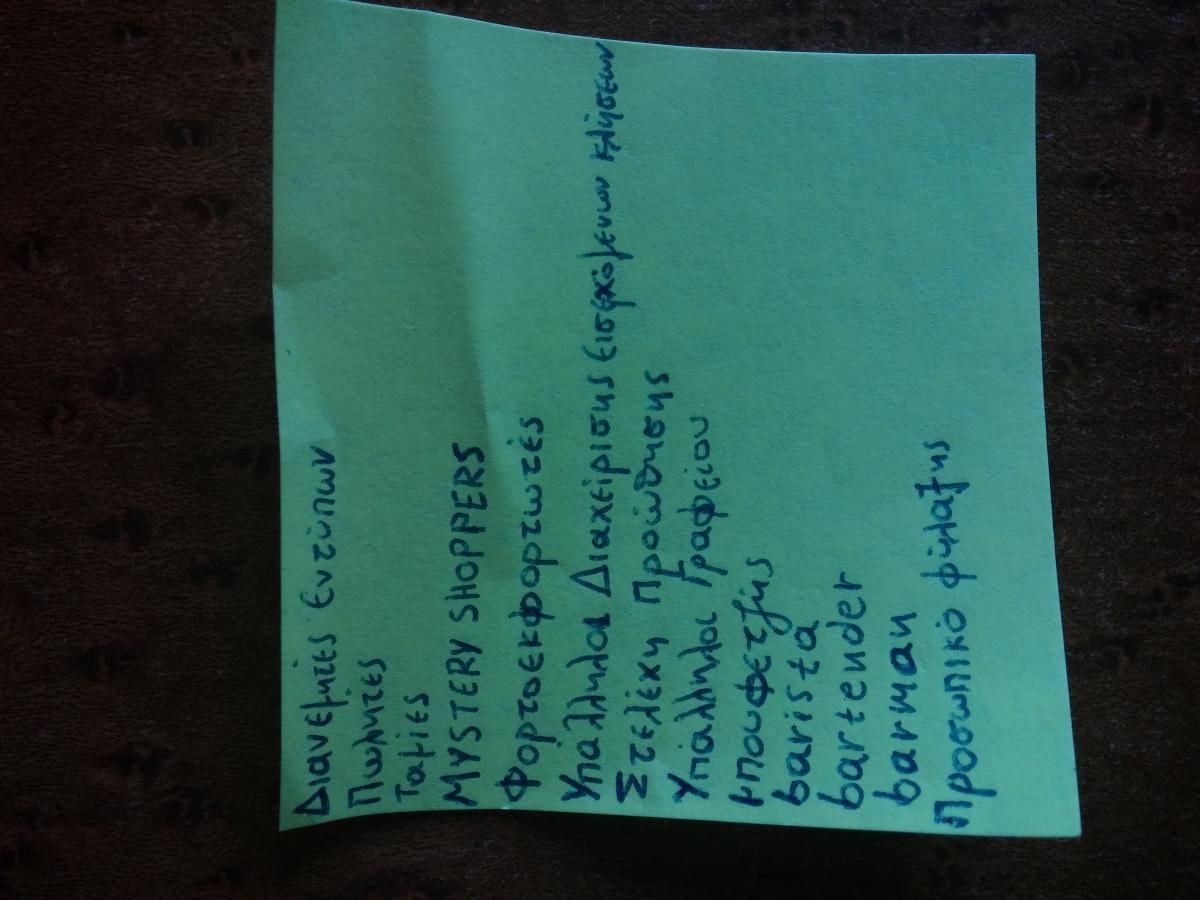 Διανεμητές Εντύπων
Πωλητές
Ταμίες
MYSTERY SHOPPERS
Φορτοεκφορτωτές
Υπάλληλοι Διαχείρισης Εισερχόμενων κλήσεων
Στελέχη Προώθησης
Υπάλληλοι Γραφείου
μπουφετζής
barista
bartender
barman
Προσωπικό φύλαξης